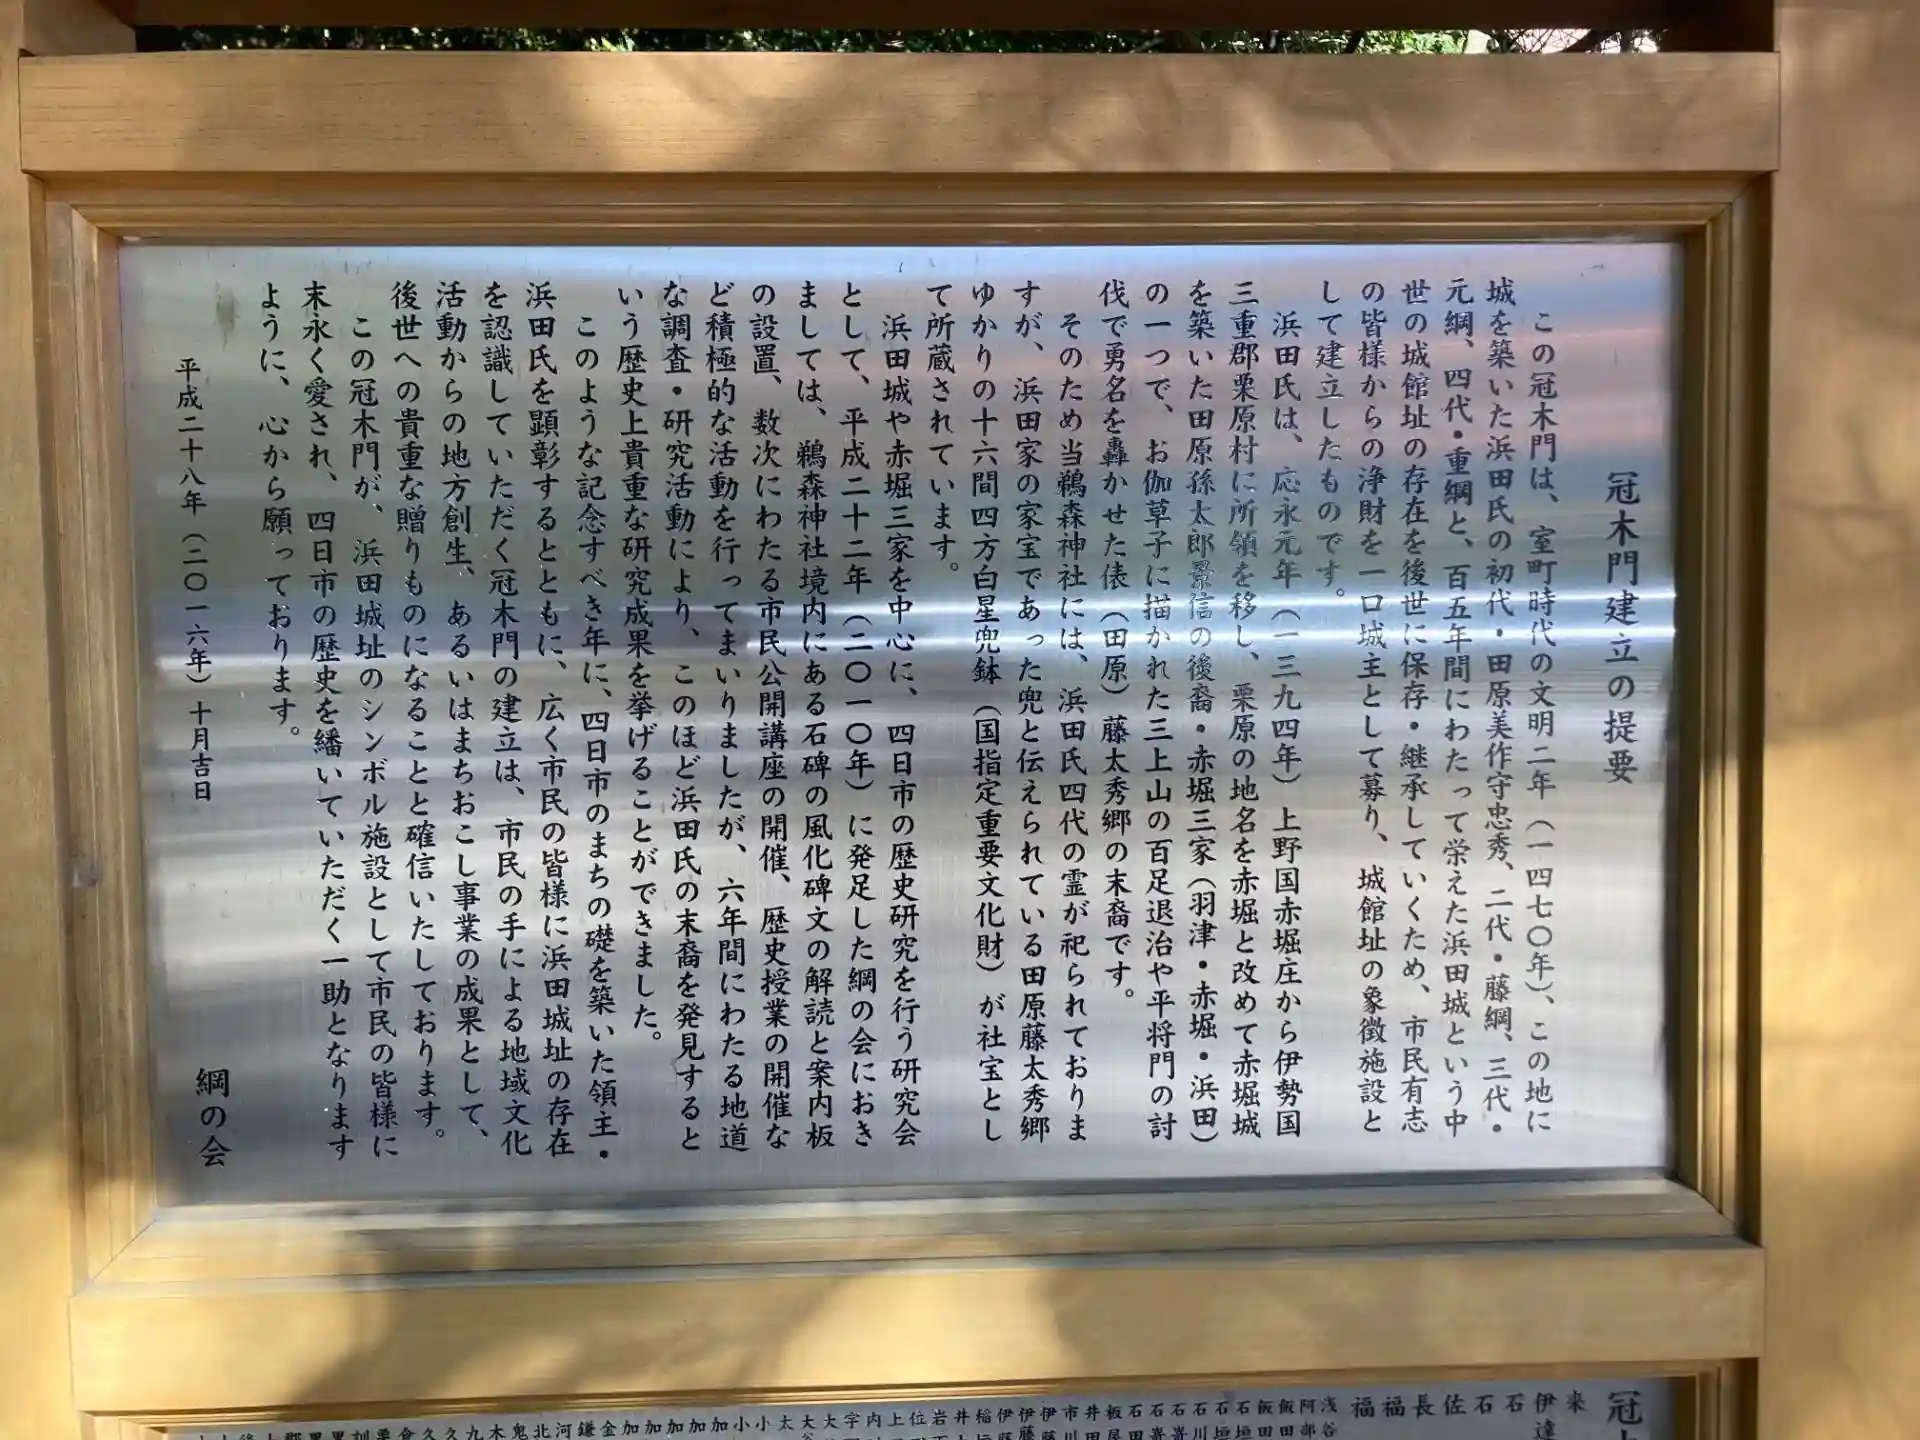 冠木門建立の提要
この冠木門は、室町時代の文明二年（一四七〇年）、この地に
城を築いた浜田氏の初代・田原美作守忠秀、二代・藤綱、三代・
元綱、四代・重綱と、百五年間にわたって栄えた浜田城という中
世の城館址の存在を後世に保存・継承していくため、市民有志
の皆様からの浄財を一口城主として募り、城館址の象徴施設と
して建立したものです。
浜田氏は、応永元年（一三九四年）上野国赤堀庄から伊勢国
三重郡栗原村に所領を移し、栗原の地名を赤堀と改めて赤堀城
を築いた田原孫太郎景信の後裔・赤堀三家（羽津・赤堀・浜田）
の一つで、お伽草子に描かれた三上山の百足退治や平将門の討
伐で勇名を轟かせた俵（田原）藤太秀郷の末裔です。
そのため当鵜森神社には、浜田氏四代の霊が祀られておりま
すが、浜田家の家宝であった兜と伝えられている田原藤太秀郷
ゆかりの十六間四方白星兜鉢（国指定重要文化財）が社宝とし
て所蔵されています。
浜田城や赤堀三家を中心に、四日市の歴史研究を行う研究会
として、平成二十二年（二〇一〇年）に発足した綱の会におき
ましては、鵜森神社境内にある石碑の風化碑文の解読と案内板
の設置、数次にわたる市民公開講座の開催、歴史授業の開催な
ど積極的な活動を行ってまいりましたが、六年間にわたる地道
な調査・研究活動により、このほど浜田氏の末裔を発見すると
いう歴史上貴重な研究成果を挙げることができました。
このような記念すべき年に、四日市のまちの礎を築いた領主・
浜田氏を顕彰するとともに、広く市民の皆様に浜田城址の存在
を認識していただく冠木門の建立は、市民の手による地域文化
活動からの地方創生、あるいはまちおこし事業の成果として、
後世への貴重な贈りものになることと確信いたしております。
この冠木門が、浜田城址のシンボル施設として市民の皆様に
末永く愛され、四日市の歴史を繙いていただく一助となります
ように、心から願っております。
平成二十八年（二〇一六年）十月吉日
綱の会
冠